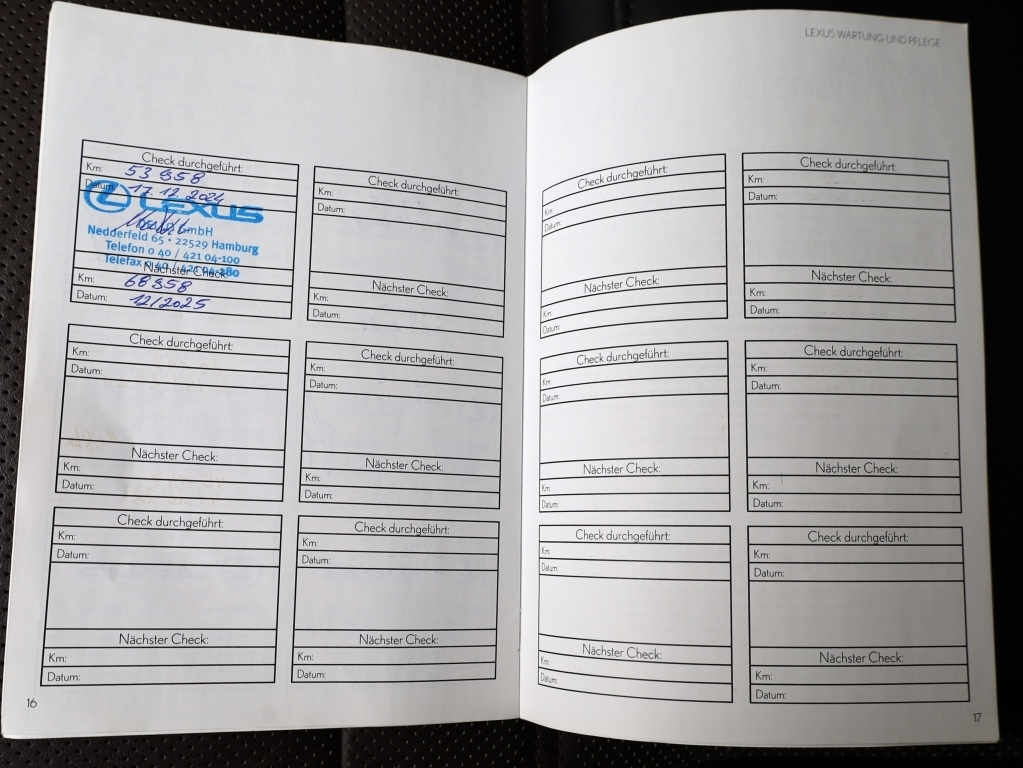 LEXUS WARTUNG UND PFLEGE
Check durchgeführt:
Km: 53 858
Datum: 17.12.2024
LEXUS
GmbH
Nedderfeld 65 • 22529 Hamburg
Telefon 0 40 / 421 04-100
Telefax 0 40 / 421 04-280
Nächster Check:
Km: 68 358
Datum: 12/2025
Check durchgeführt:
Km:
Datum:
Nächster Check:
Km:
Datum:
Check durchgeführt:
Km:
Datum:
Nächster Check:
Km:
Datum:
Check durchgeführt:
Km:
Datum:
Nächster Check:
Km:
Datum:
Check durchgeführt:
Km:
Datum:
Nächster Check:
Km:
Datum:
Check durchgeführt:
Km:
Datum:
Nächster Check:
Km:
Datum:
16
Check durchgeführt:
Km:
Datum:
Nächster Check:
Km:
Datum:
Check durchgeführt:
Km:
Datum:
Nächster Check:
Km:
Datum:
Check durchgeführt:
Km:
Datum:
Nächster Check:
Km:
Datum:
Check durchgeführt:
Km:
Datum:
Nächster Check:
Km:
Datum:
Check durchgeführt:
Km:
Datum:
Nächster Check:
Km:
Datum:
Check durchgeführt:
Km:
Datum:
Nächster Check:
Km:
Datum:
17